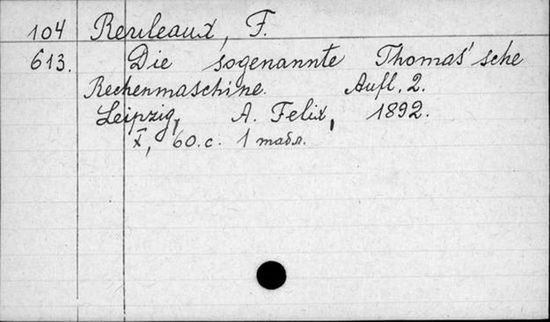 104 Reuleaux, F.
613. Die sogenannte Thomas'sche
Rechenmaschine. Aufl. 2.
Leipzig, A. Felix, 1892.
X, 60.c. 1 табл.